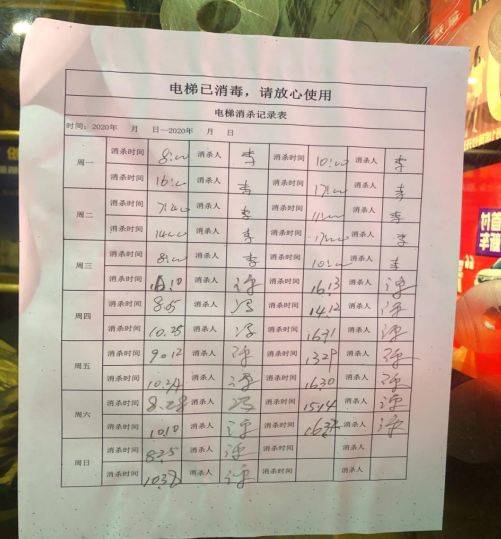 电梯已消毒，请放心使用
电梯消杀记录表
时间：2020年 月 日—2020年 月 日
周一 消杀时间 8:00 消杀人 李 消杀时间 10:00 消杀人 李
消杀时间 16:00 消杀人 李 消杀时间 17:00 消杀人 李
周二 消杀时间 7:00 消杀人 李 消杀时间 11:00 消杀人 李
消杀时间 14:00 消杀人 李 消杀时间 17:00 消杀人 李
周三 消杀时间 8:00 消杀人 李 消杀时间 10:00 消杀人 李
消杀时间 消杀人 消杀时间 16.13 消杀人
周四 消杀时间 8.05 消杀人 冯 消杀时间 14.12 消杀人
消杀时间 10.25 消杀人 冯 消杀时间 1631 消杀人
周五 消杀时间 9.012 消杀人 消杀时间 1329 消杀人
消杀时间 消杀人 消杀时间 16.30 消杀人
周六 消杀时间 消杀人 冯 消杀时间 1514 消杀人
消杀时间 1010 消杀人 消杀时间 消杀人
周日 消杀时间 825 消杀人 消杀时间 消杀人
消杀时间 消杀人 消杀时间 消杀人